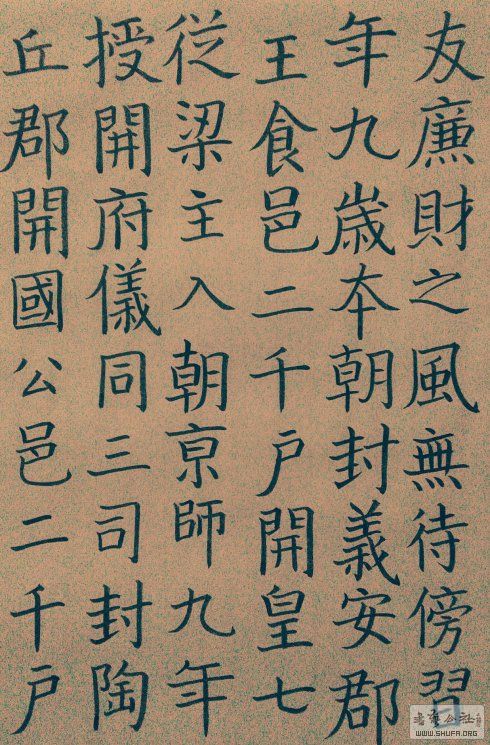 友廉財之風無待傍習
年九歳夲朝封義安郡
王食邑二千戶開皇七
従梁主入朝亰師九年
授開府儀同三司封陶
丘郡開國公邑二千戶
WWW.SHUFA.ORG